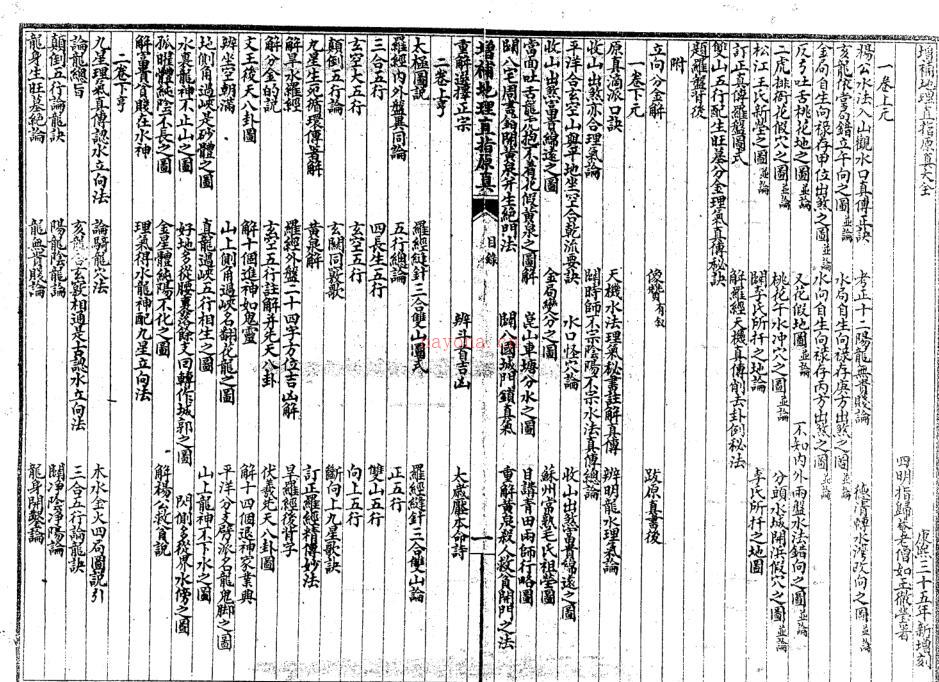 增補地理直指原真大全
康熙三十五年新增刻
四明指歸菴老僧如玉徹瑩著
一卷上元
楊公水法入山觀水口真傳正訣
考正十二陽龍無貴賤論
玄空大五行
向上五行
三合五行
四長生五行
雙山五行
羅經內外盤異同論
五行總論
正五行
太極圖說
羅經縫針三合雙山圖式
羅經縫針三合雙山論
二卷上亨
重解選擇正宗
辨斗首吉凶
太歲壓本命詩
增補地理直指原真
目錄
一
闢八宅周書鈴開黃泉并生絕門法
闢八國城門鎖真氣
重解黃泉殺人救貧開門之法
當面吐舌龍虎抱不着花假黃泉之圖解
崑山車塘分水之圖
日講青田兩師行略圖
收山出煞富貴綿遠之圖
金局變分之圖
蘇州常熟毛氏祖塋圖
平洋合玄空山與平地坐空合乾流要訣
水口怪穴論
收山出煞富貴綿遠之圖
收山出煞亦合理氣論
闢時師不宗陰陽不宗水法真傳總論
原真滴派口訣
天機水法理氣秘書註解真傳
辨明龍水理氣論
一卷下元
立向分金解
後贊有叙
跋原真書後
附
題羅盤背後
雙山五行配生旺墓分金理氣真傳秘訣
訂正真傳羅盤圖式
解羅經天機真傳削去卦例秘法
松江王氏新塋之圖並論
闢李氏所扦之地論
李氏所扦之地圖
二虎排衙花假穴之圖並論
桃花千水冲穴之圖並論
分頭水城開浜假穴之圖並論
反弓吐舌桃花地之圖並論
又花假地圖並論
不知內外兩盤水法錯向之圖並論
金局自生向祿存甲位出煞之圖並論
水向自生向祿存丙方出煞之圖並論
亥龍依富局錯立午向之圖並論
水局自生向祿存庚方出煞之圖並論
顛倒五行論
玄關同竅歌
斷向上九星歌訣
九星生宛循環傳薯解
黃泉解
訂正羅經精傳妙法
解旱水羅經
羅經外盤二十四字方位吉凶解
旱羅經後背字
解分金的說
玄空五行註解并先天八卦
伏羲先天八卦圖
文王後天八卦圖
解十個進神如鬼靈
解十四個退神家業典
辨坐空朝滿
山上側角過峽名翻花龍之圖
平洋分支劈派名龍鬼脚之圖
地側角過峽是砂體之圖
真龍過峽五行相生之圖
山上龍神不下水之圖
水裏龍神不上山之圖
好地多從腰裏落餘支回轉作城郭之圖
閃側多從界水傍之圖
孤陰體純陰不長之圖
金星體純陽不化之圖
解楊公救貧說
解富貴貧賤在水神
理氣得水龍神配九星立向法
二卷下亨
九星理氣真傳認水立向法
論騎龍穴法
木水金火四局圖說引
論龍總旨
亥龍合玄竅相通是古認水立向法
三合五行論龍訣
顛倒五行論龍訣
陽龍陰龍論
闢淨陰淨陽論
龍身生旺墓絕論
龍無貴賤論
龍身開鑿論